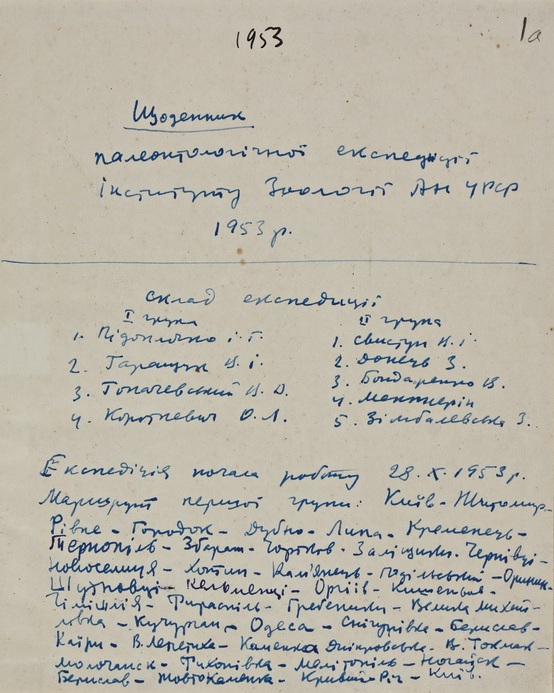 1953
1а
Щоденник
палеонтологічної експедиції
інституту Зоології АН УРСР
1953 р.
склад експедиції
I група
1. Підоплічко І. Г.
2. Таращук В. І.
3. Топачевський В. О.
4. Короткевич О. Л.
II група
1. Свистун В. І.
2. Донець З.
3. Бондаренко В.
4.
5. Зімбалевська З.
Експедіція почала роботу 28. X. 1953 р.
Маршрут першої групи: Київ - Житомир -
Рівне - Городок - Дубно - Липа - Кременець -
Тернопіль - Збараж - Чортков - Заліщики - Чернівці -
Новоселиця - Хотин - Кам'янець - Подільський -
Кельменці - Оргіїв - Кишенев -
Тирасполь - Гребеники - Велика Михай-
лівка - Кучурган - Одеса - Снігурівка - Берислав -
Каїри - В. Лепетиха - Каменка Дніпровська - В. Токмак -
Молочанск - Тихонівка - Мелітополь - Ногайск -
Берислав - Жовтокаменка - Кривий Ріг - Київ.